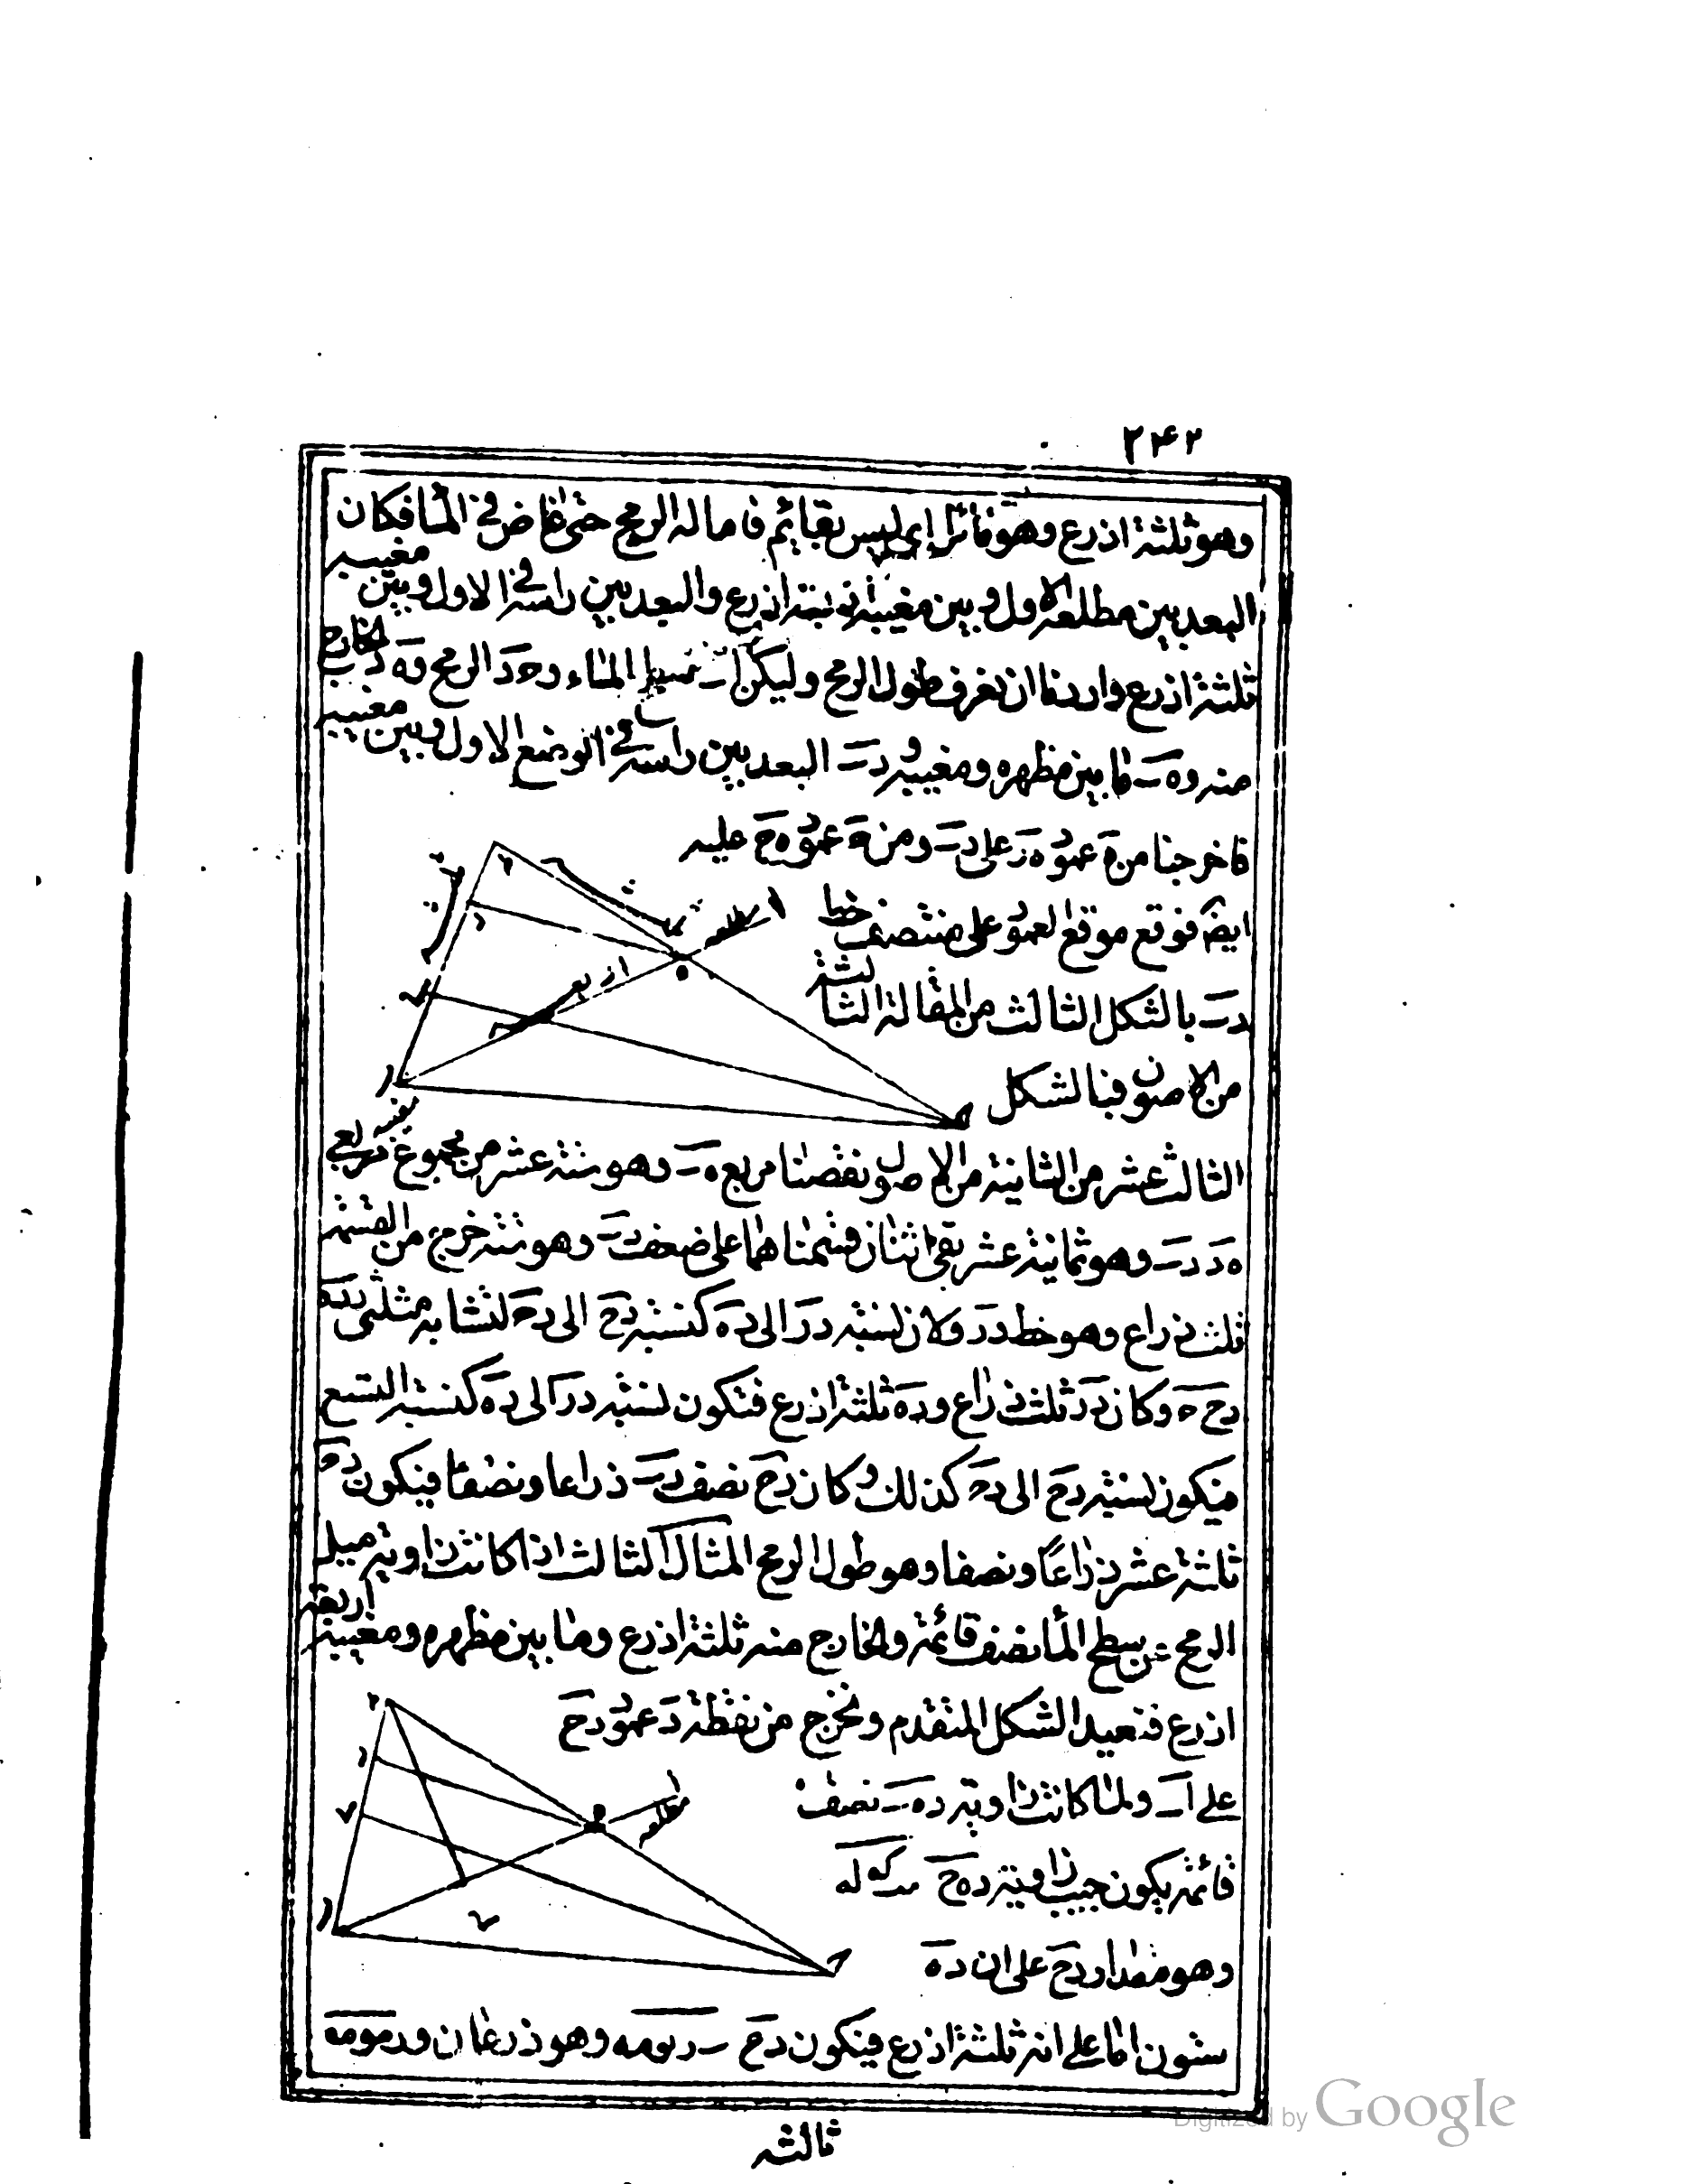 ۲۴۲
وهو ثلثة اذرع وهو مائل اي ليس بقايم فاماله الرمح حتى غاض في المأ فكان
البعد بين مطلعه الاول وبين مغيبه اربعة اذرع والبعد بين راسه في الاول وبين مغيبه
ثلثة اذرع واردنا ان نعرف طول الرمح وليكن اب بسيط الماء و حد الرمح و ده الخارج
منه و ه ب ما بين مظهره ومغيبه و د ب البعد بين راسه في الوضع الاول وبين مغيبه
فاخرجنا من ه عمود ه ر على د ب ومن ح عمود ح ح عليه
ايضا فوقع موقع العمود على منتصف خط
د ب بالشكل الثالث من المقالة الثالثة
من الاصول فبالشكل
الثالث عشر من الثانية من الاصول نقصنا مربع ه ب وهو ستة عشر من مجموع مربعي
ه د د ب وهو ثمانية عشر بقي اثنان قسمناهما على ضعف د ب وهو ستة خرج من القسمة
ثلث ذراع وهو خط د ر ولان نسبة د ر الى د ه كنسبة د ح الى د ح لتشابه مثلثي د ر ه
د ح ح وكان د ر ثلث ذراع و د ه ثلثة اذرع فتكون نسبة د ر الى د ه كنسبة التسع
فيكون نسبة د ح الى د ح كذلك وكان د ح نصف د ب ذراعا ونصفا فيكون د ح
ثلثة عشر ذراعا ونصفا وهو طول الرمح المثال الثالث اذا كانت زاوية ميل
الرمح عن سطح المأ نصف قائمة والخارج منه ثلثة اذرع وما بين مظهره ومغيبه اربعة
اذرع فنعيد الشكل المتقدم ونخرج من نقطة د عمود د ح
على اب ولما كانت زاوية د ه ب نصف
قائمة يكون جيب زاوية د ه ح
وهو مقدار د ح على ان د ه
ستون اما على انه ثلثة اذرع فيكون د ح وهو ذراعان و
ثالثه
Digitized by Google